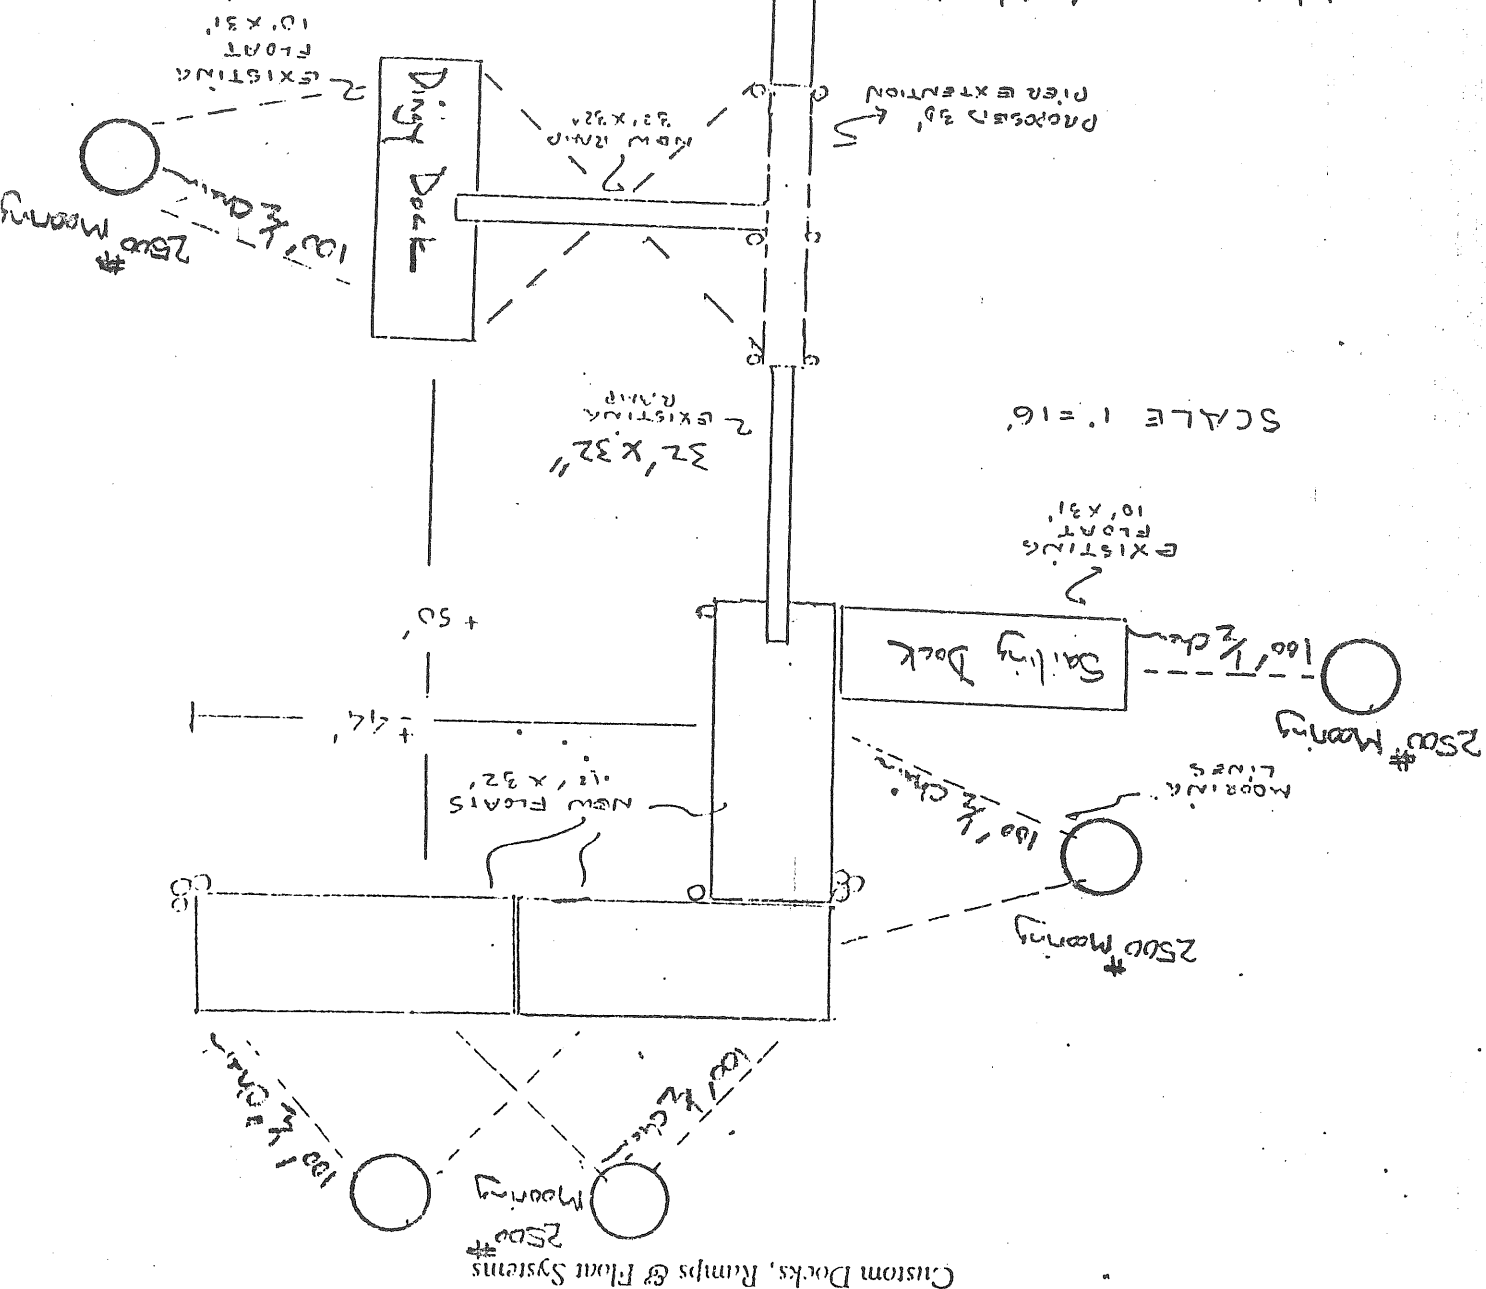 Custom Docks, Ramps & Float Systems
2500#
Mooring
100' ½ Chain
100' ½ Chain
2500# Mooring
MOORING
LINES
100' ½ Chain
NEW FLOATS
12' X 32'
2500# Mooring
100' ½ Chain
Sailing Dock
± 44'
± 50'
EXISTING
FLOAT
10' X 31'
SCALE 1" = 16'
32' X 32"
EXISTING
RAMP
2500#
Mooring
100' ½ Chain
Dingy Dock
NEW RAMP
32' X 32"
PROPOSED 30'
PIER EXTENTION
EXISTING
FLOAT
10' X 31'